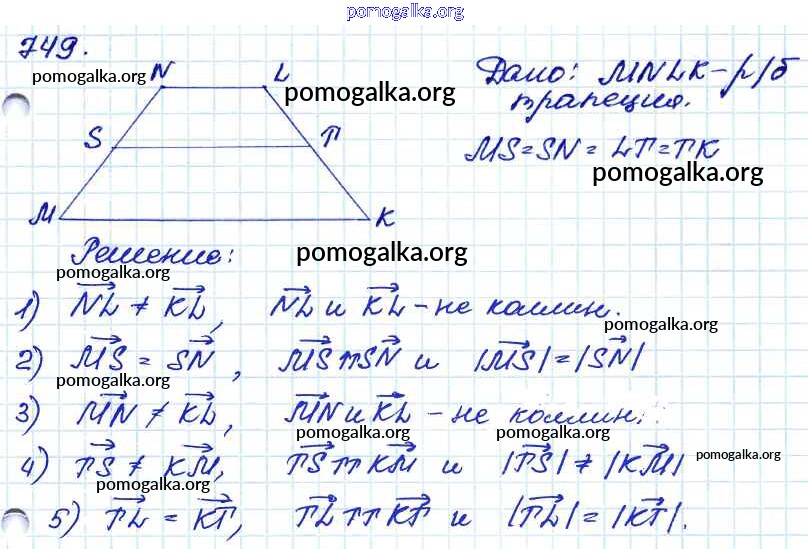 pomogalka.org
749.
pomogalka.org
N L
pomogalka.org
Дано: MNLK – р/б
трапеция.
S T
MS = SN = LT = TK
pomogalka.org
M K
Решение:
pomogalka.org
pomogalka.org
1) NL ≠ KL, NL и KL – не коллин.
pomogalka.org
2) MS = SN, MS ⇈ SN и |MS| = |SN|
pomogalka.org
3) MN ≠ KL, MN и KL – не коллин.
pomogalka.org pomogalka.org
4) TS ≠ KM, TS ⇈ KM и |TS| ≠ |KM|
pomogalka.org
pomogalka.org
5) TL = KT, TL ⇈ KT и |TL| = |KT|.